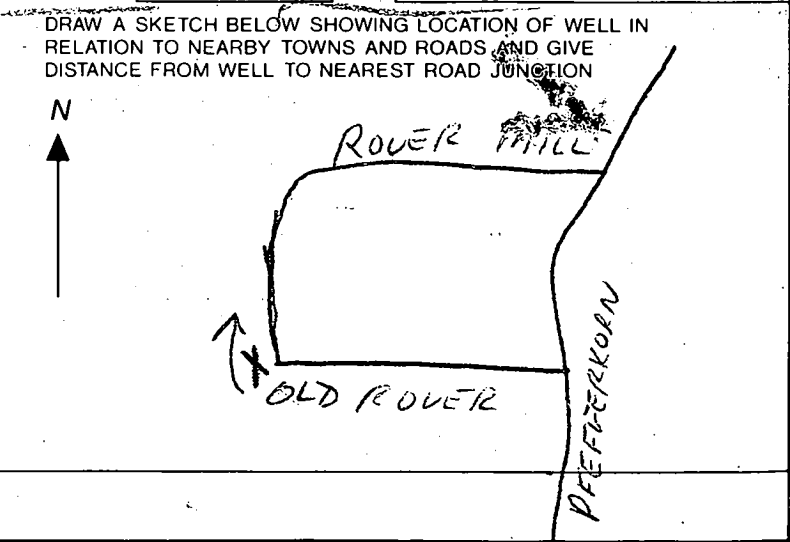 DRAW A SKETCH BELOW SHOWING LOCATION OF WELL IN
RELATION TO NEARBY TOWNS AND ROADS AND GIVE
DISTANCE FROM WELL TO NEAREST ROAD JUNCTION
N
ROVER MILL
X
OLD ROVER
PFEFFERKORN